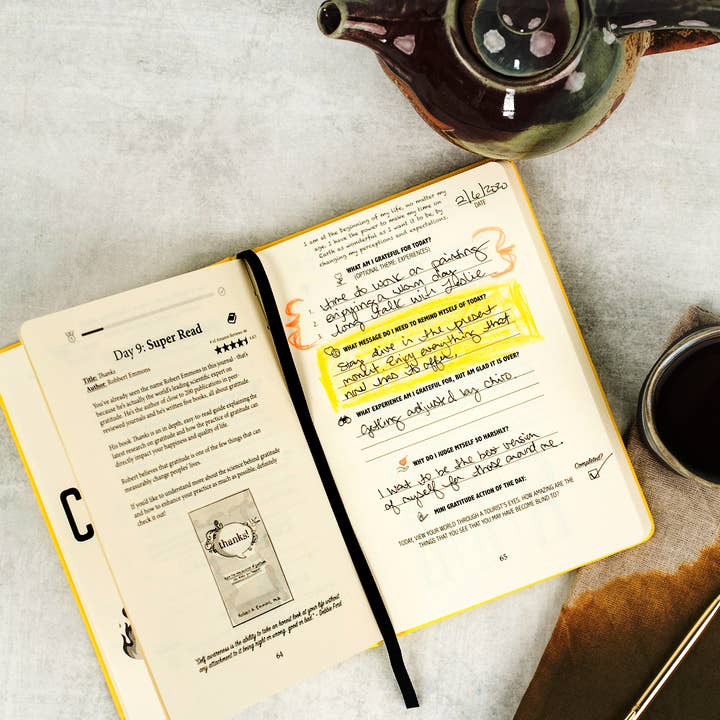 Day 9: Super Read
Title: Thanks
Author: Robbert Emmons
You've already seen the name Robert Emmons in this journal - that's
because he's actually the world's leading scientific expert on
gratitude. He's the author of close to 200 publications in peer-
reviewed journals and he's written five books, all about gratitude.
His book Thanks is an in depth, easy-to-read guide explaining the
latest research on gratitude and how the practice of gratitude can
directly impact your business and quality of life.
Robert believes that gratitude is one of the few things that can
measurably change peoples' lives.
If you'd like to understand more about the science behind gratitude
and how to enhance your practice as much as possible, definitely
check it out!
thanks!
Robert A. Emmons, Ph.D.
"Self awareness is the ability to take an honest look at your life without
any attachment to it being right or wrong, good or bad." - Debbie Ford
64
2/6/2020
DATE
I am at the beginning of my life, no matter my
age. I have the power to make my time on
Earth as wonderful as I want it to be, by
changing my perceptions and expectations.
WHAT AM I GRATEFUL FOR TODAY?
(OPTIONAL THEME: EXPERIENCES)
1. time to work on painting
2. enjoying a warm day
3. long talk with Leslie
WHAT MESSAGE DO I NEED TO REMIND MYSELF OF TODAY?
Stay alive in the present
moment. Enjoy everything that
now has to offer.
WHAT EXPERIENCE AM I GRATEFUL FOR, BUT AM GLAD IT IS OVER?
getting adjusted by chiro.
WHY DO I JUDGE MYSELF SO HARSHLY?
I want to be the best version
of myself for those around me.
MINI GRATITUDE ACTION OF THE DAY:
Completed?
TODAY, VIEW YOUR WORLD THROUGH A TOURIST'S EYES. HOW AMAZING ARE THE
THINGS THAT YOU SEE THAT YOU MAY HAVE BECOME BLIND TO?
65
C